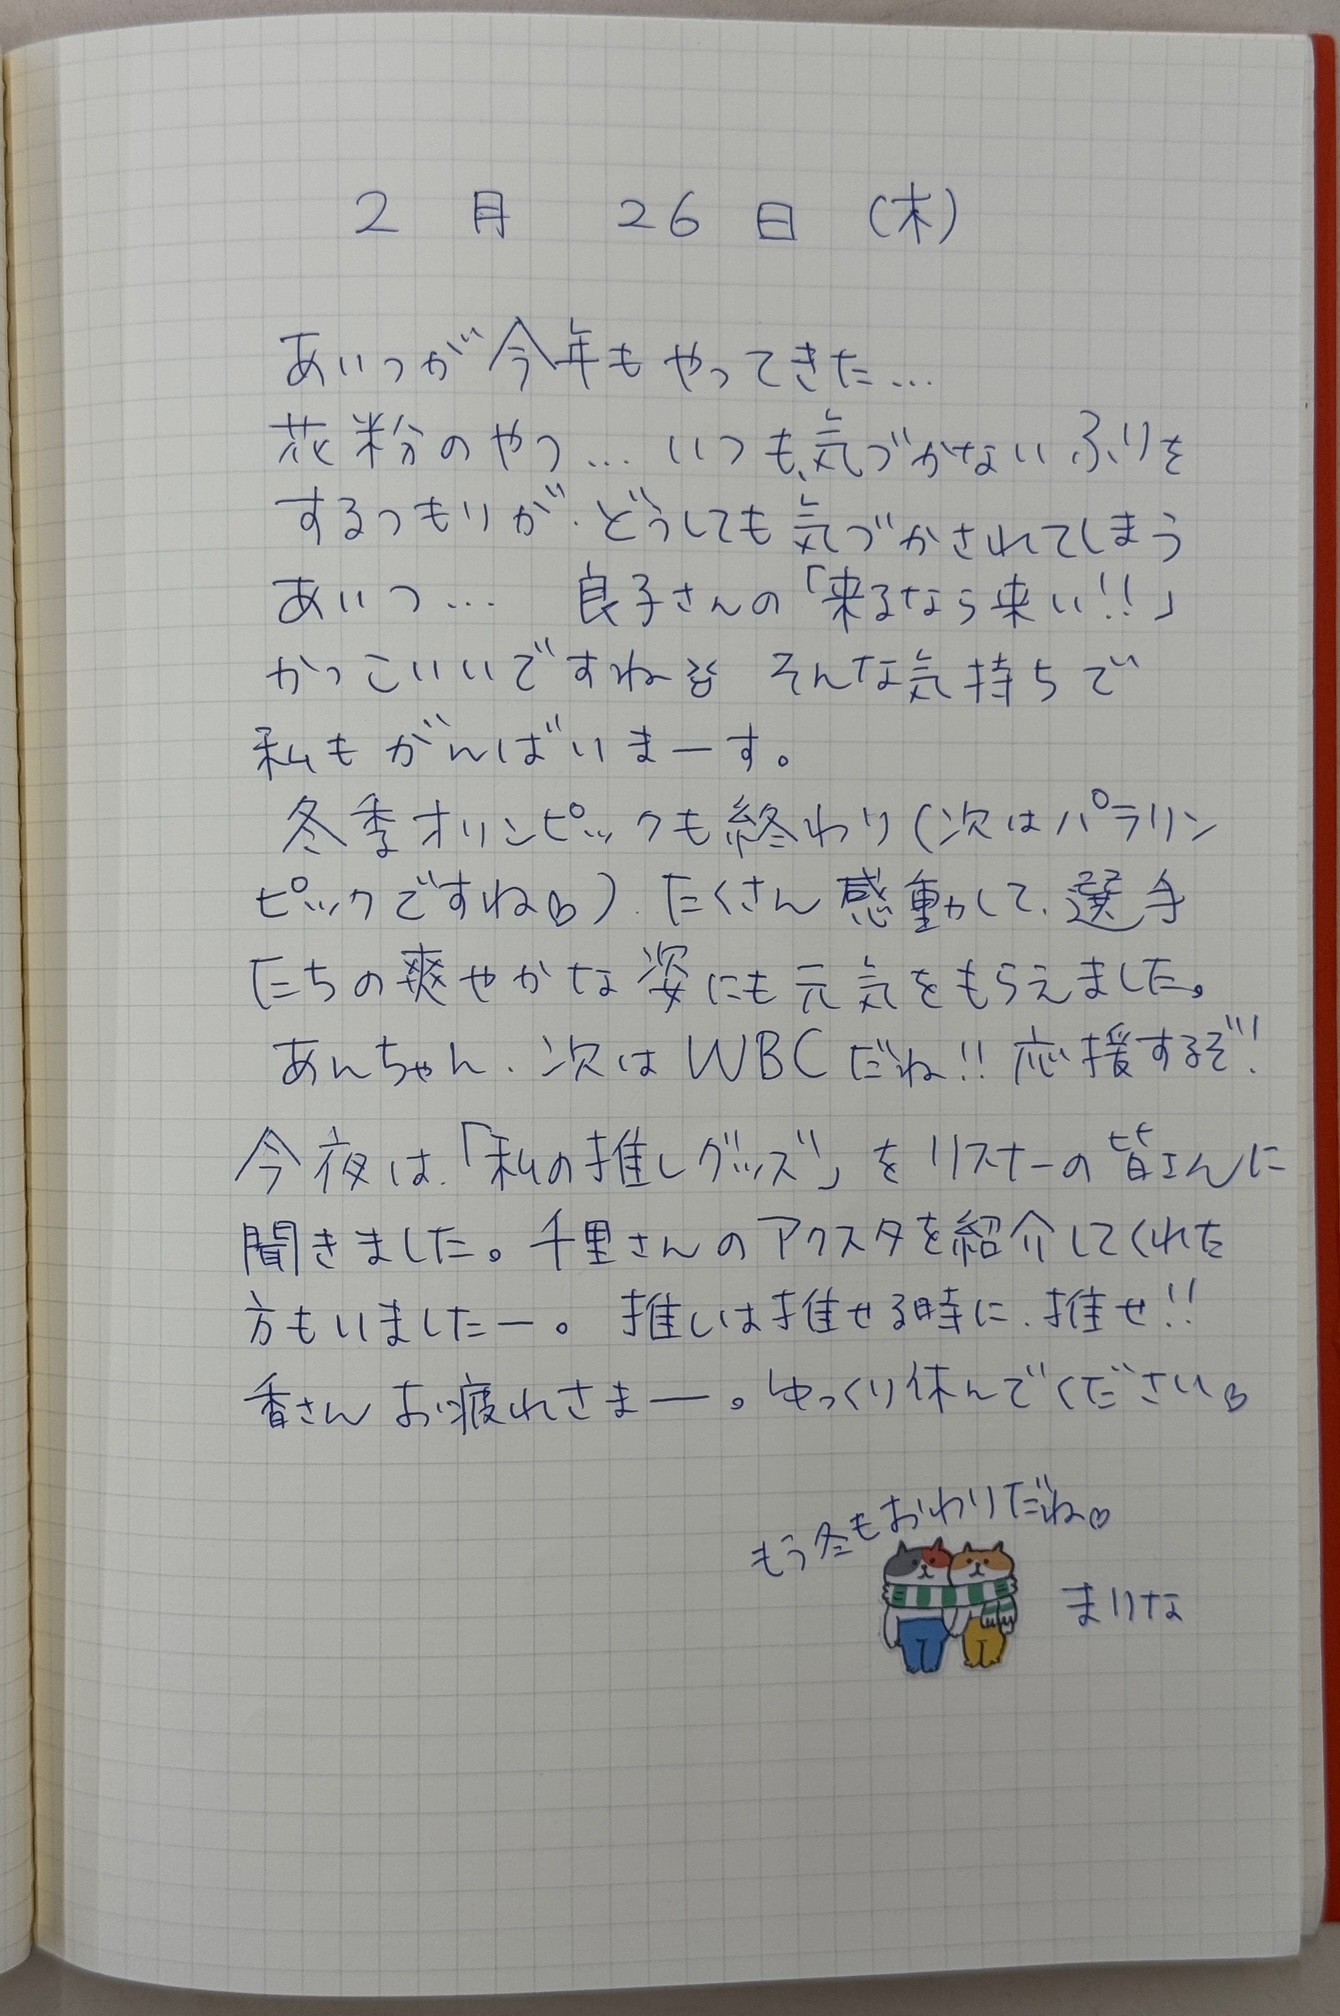 2月 26日 (木)
あいつが今年もやってきた…
花粉のやつ… いつも、気づかないふりを
するつもりが、どうしても気づかされてしまう
あいつ… 良子さんの「来るなら来い!!」
かっこいいですね そんな気持ちで
私もがんばいまーす。
冬季オリンピックも終わり(次はパラリン
ピックですね♡)、たくさん感動して、選手
たちの爽やかな姿にも元気をもらえました。
あんちゃん、次はWBCだね!! 応援するぞ!!
今夜は、「私の推しグッズ」をリスナーの皆さんに
聞きました。千里さんのアクスタを紹介してくれた
方もいましたー。推しは推せる時に、推せ!!
香さんお疲れさまー。ゆっくり休んでください♡
もう冬もおわりだね♡
まりな